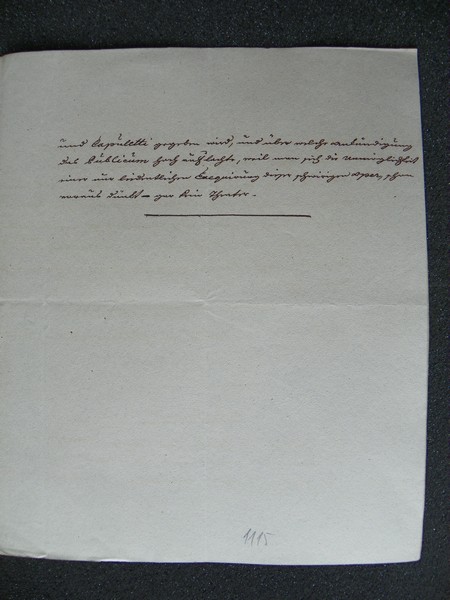 und Capuletti gegeben wird, und über welche Ankündigung
das Publicum hoch auflachte, weil man sich die Unmöglichkeit
einer nur leidentlichen Exequirung dieser schwierigen Oper, schon
voraus denkt – gar kein Theater. –
1115